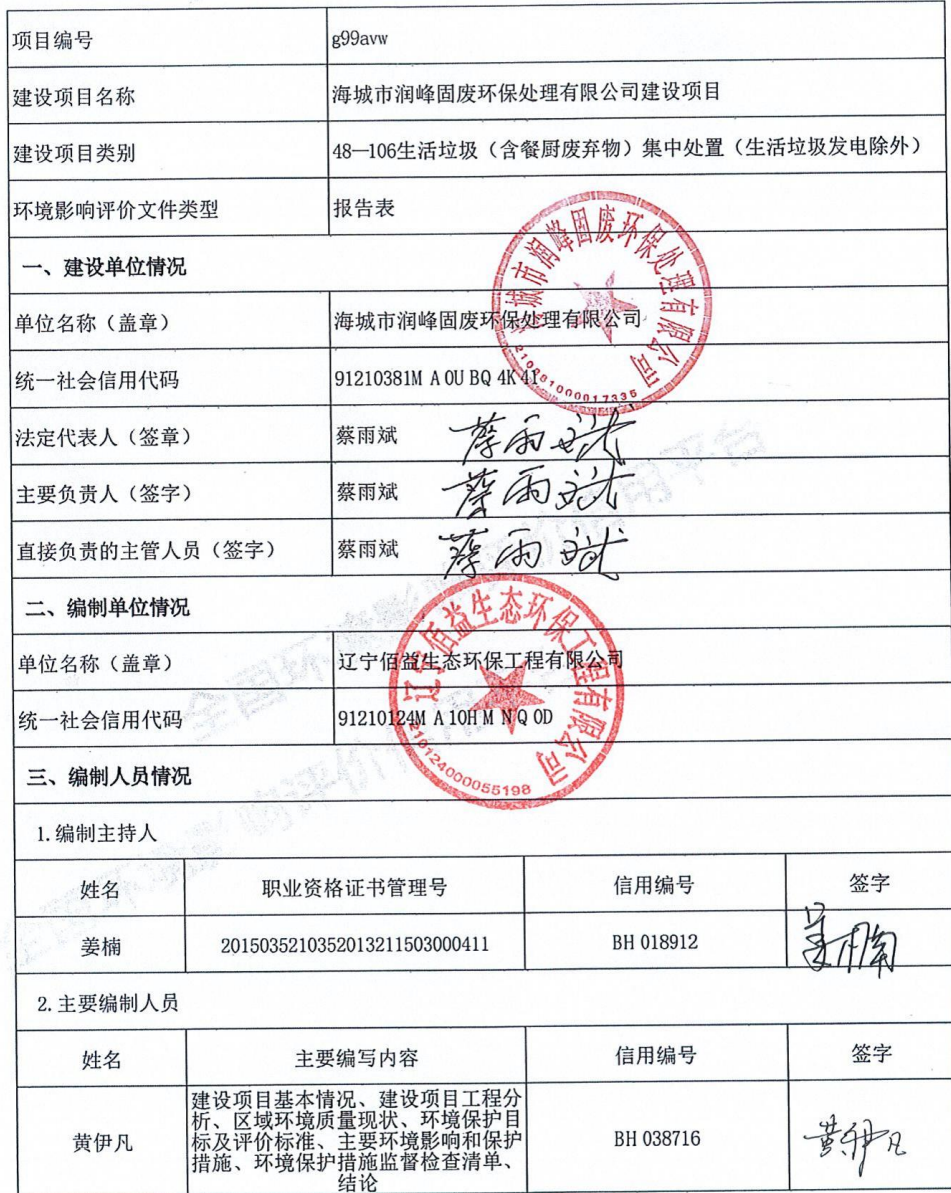 项目编号 g99avw
建设项目名称 海城市润峰固废环保处理有限公司建设项目
建设项目类别 48—106生活垃圾（含餐厨废弃物）集中处置（生活垃圾发电除外）
环境影响评价文件类型 报告表
一、建设单位情况
单位名称（盖章） 海城市润峰固废环保处理有限公司
统一社会信用代码 91210381M A 0U BQ 4K 41
海城市润峰固废环保处理有限公司
210381000017335
法定代表人（签章） 蔡雨斌 蔡雨斌
主要负责人（签字） 蔡雨斌 蔡雨斌
直接负责的主管人员（签字） 蔡雨斌 蔡雨斌
二、编制单位情况
单位名称（盖章） 辽宁佰益生态环保工程有限公司
统一社会信用代码 91210124M A 10H M N Q 0D
辽宁佰益生态环保工程有限公司
2101240000055198
三、编制人员情况
1.编制主持人
姓名 职业资格证书管理号 信用编号 签字
姜楠 2015035210352013211503000411 BH 018912 姜楠
2.主要编制人员
姓名 主要编写内容 信用编号 签字
黄伊凡 建设项目基本情况、建设项目工程分
析、区域环境质量现状、环境保护目
标及评价标准、主要环境影响和保护
措施、环境保护措施监督检查清单、
结论 BH 038716 黄伊凡